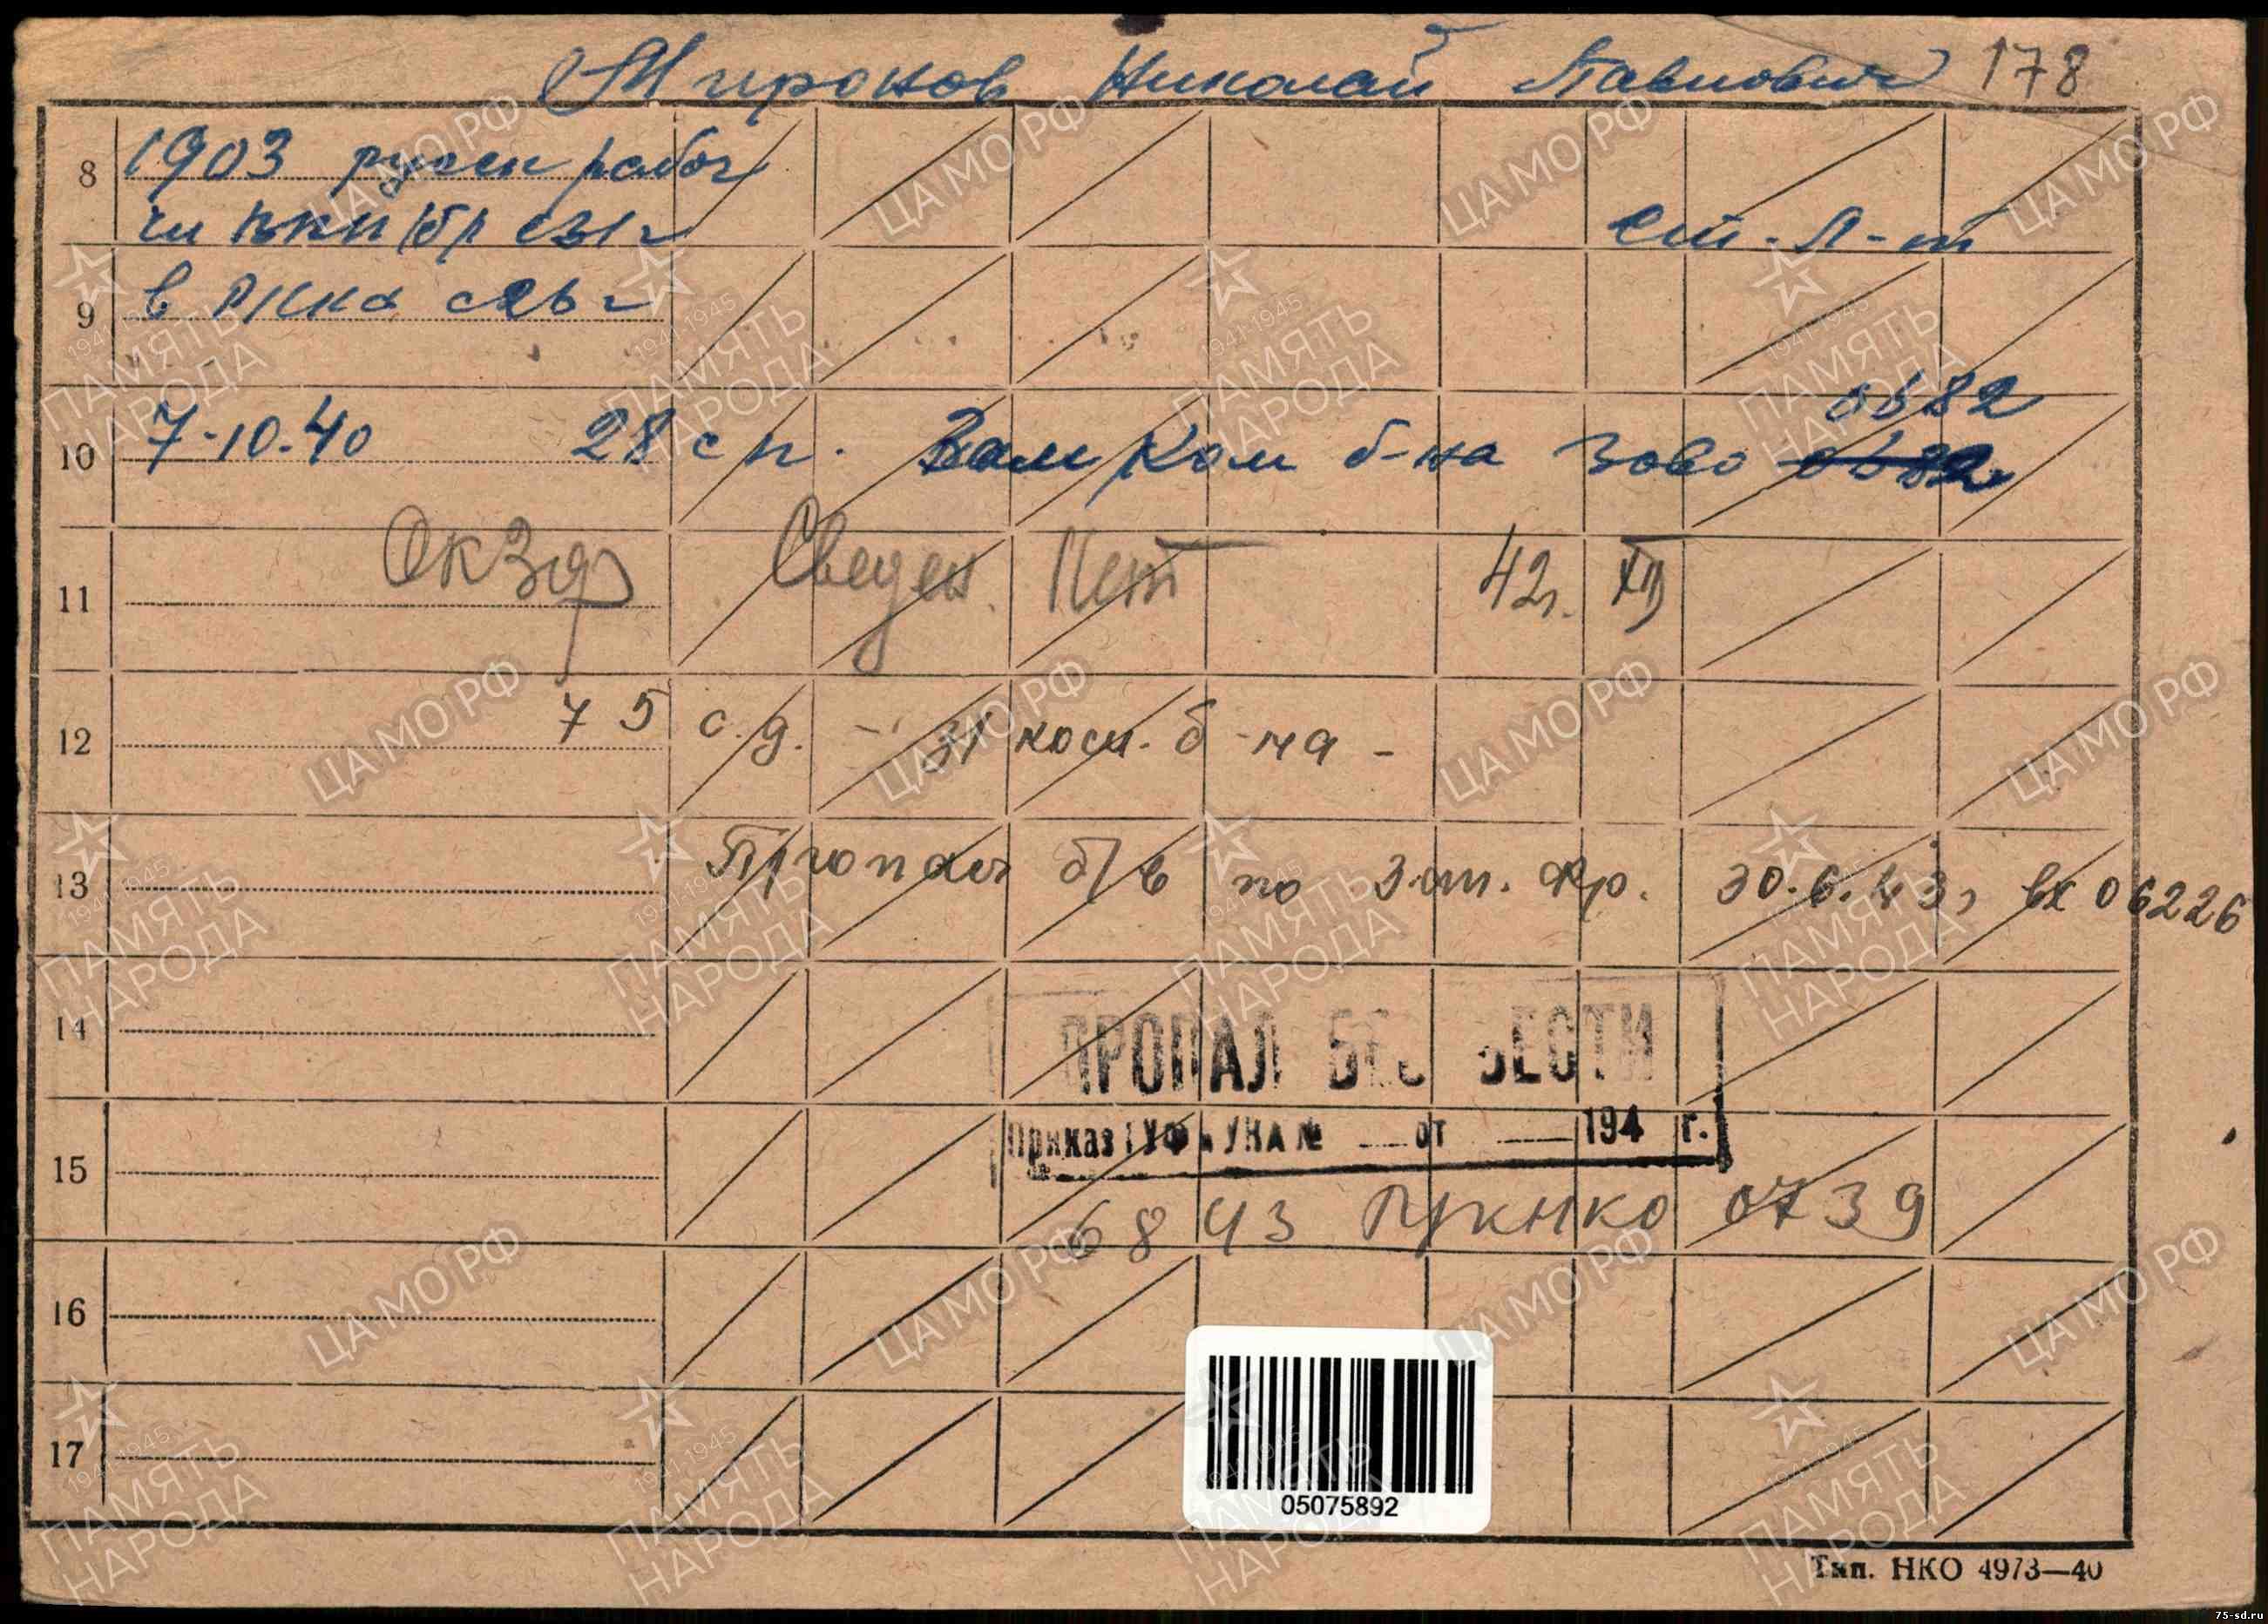 Миронов Николай Павлович 178
8 1903 русск рабоч
чл ВКП(б) с31г ст. л-т
9 в РККА с26г
0682
10 7-10.40 28 сп. Зам Ком б-на Зово 0682
11 Сведен. Нет 42г. XII
12 75 с.д. - 31 б-на -
13 Пропал б/в по Зап. Фр. 30.6.43г вх 06226
14 ПРОПАЛ БЕЗ ВЕСТИ
Приказ ГУФ УНА № от 194 г.
15 6843 ГУКНКО 0739
16
17
05075892
Тип. НКО 4973—40
ЦАМО РФ
1941-1945
ПАМЯТЬ
НАРОДА
75-sd.ru